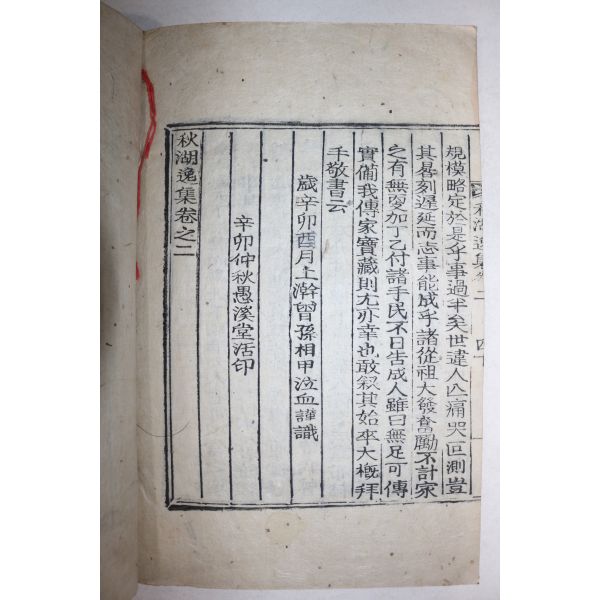 秋湖逸集卷二
規模略定於是乎事過半矣世違人亡痛哭叵測豈
其晷刻遲延而志事能成乎諸從祖大發奮勵不計家
之有無更加丁乙付諸手民不日告成人雖曰無足可傳
實備我傳家寶藏則尤亦幸也敢叙其始卒大槪拜
手敬書云
歲辛卯酉月上澣曾孫相甲泣血謹識
辛卯仲秋愚溪堂活印
秋湖逸集卷之二